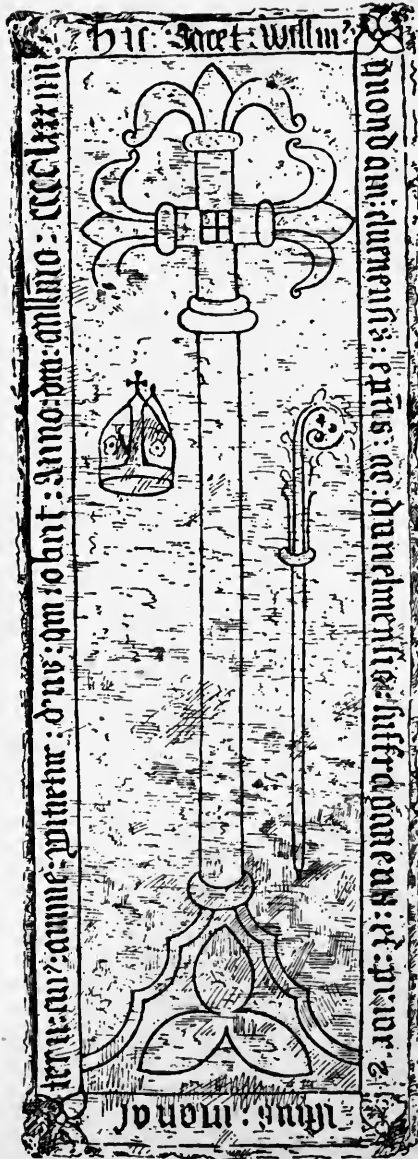 hic : Jacet : Willm'
quondam : cluenensis : epus : ac : dunelmensis : suffraganeus : et : prior :
istius : monas
terii : cui' : anime : ppitietur : d'ns : qui : obiit : Anno : dni : millimo :